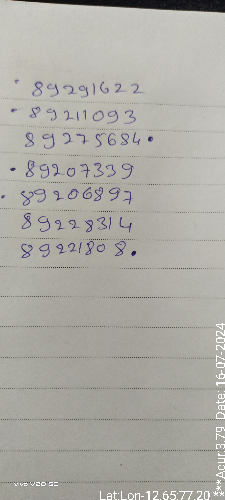 89291622
89211093
89275684.
89207339
89206897
89228314
89221808.
vivo V20 SE
Lat:Lon-12.65:77.20
***Acur:3.79 Date:16-07-2024